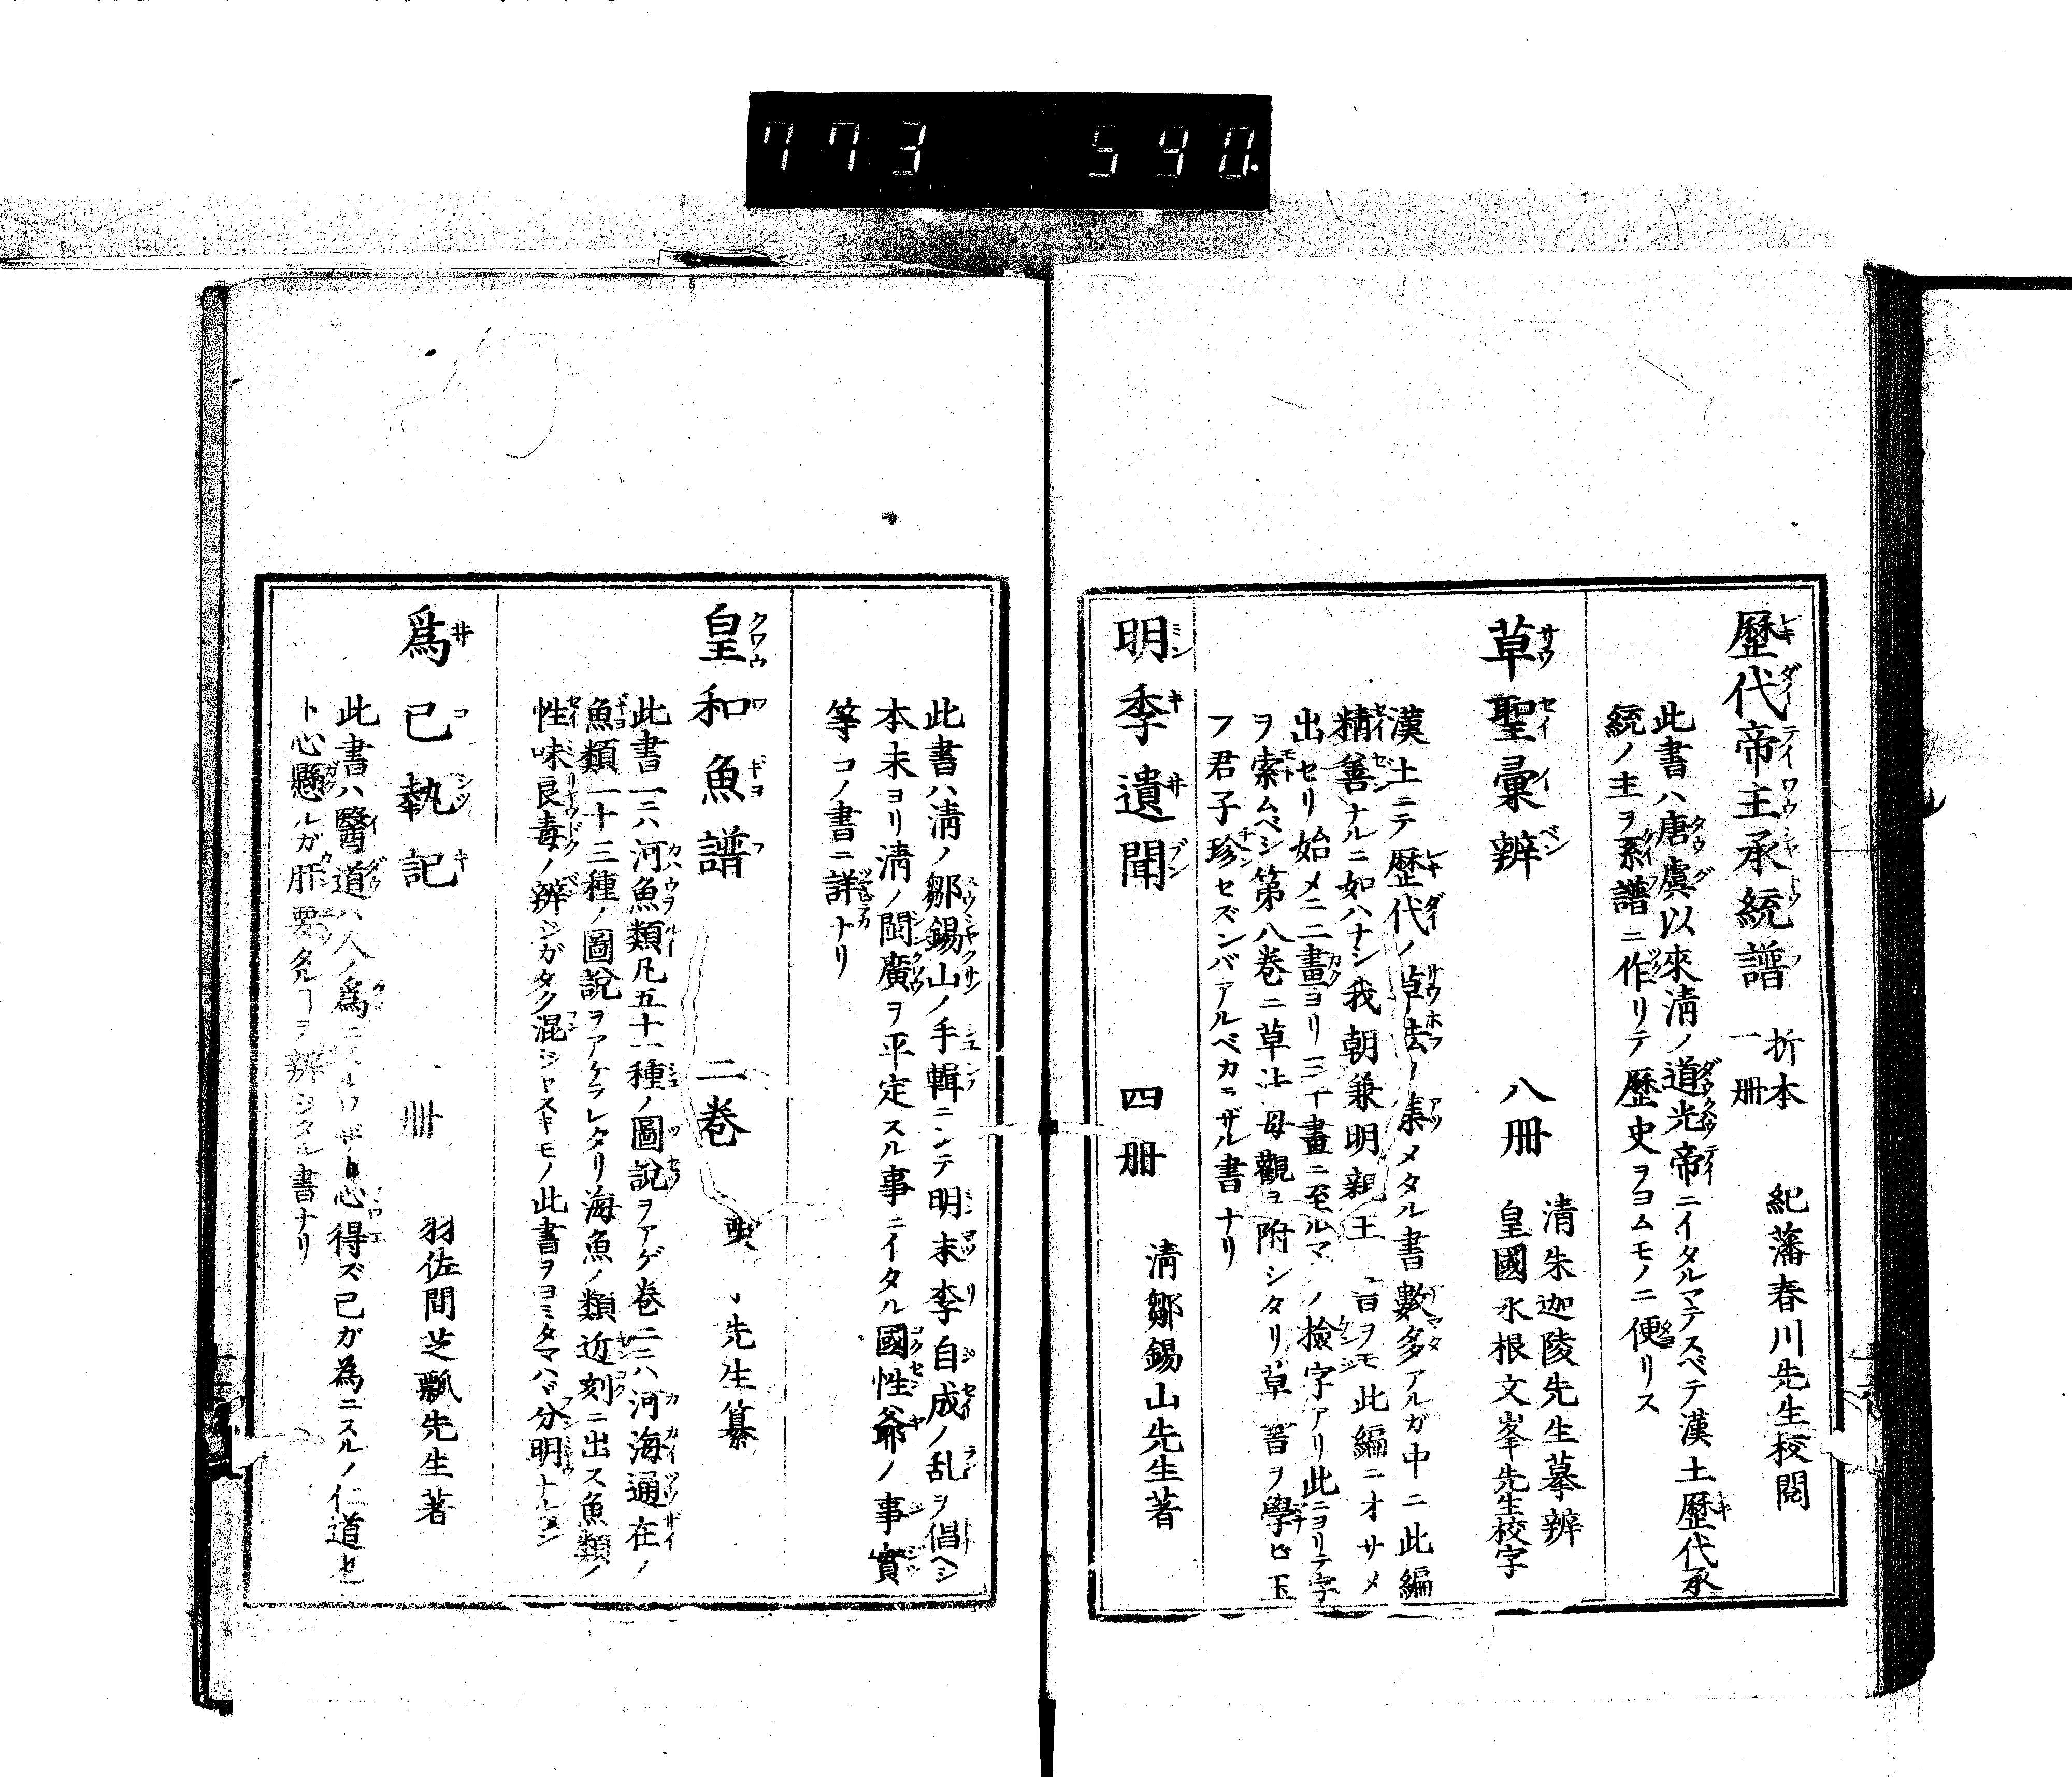 773 590.
歷代帝主承統譜 折本一册 紀藩春川先生校閱
此書ハ唐虞以來淸ノ道光帝ニイタルマテスベテ漢土歷代承
統ノ主ヲ系譜ニ作リテ歷史ヲヨムモノニ便リス
草聖彙辨 八册 清朱迦陵先生摹辨
皇國水根文峯先生校字
漢土ニテ歷代ノ草法ノ集メタル書數多アルガ中ニ此編
精善ナルニ如ハナシ我朝兼明親王 ヲモ此編ニオサメ
出セリ始メニ二畫ヨリ三十畫ニ至ルマ ノ撿字アリ此ニヨリテ字
ヲ索ムベシ第八卷ニ草法母觀ヲ附シタリ草書ヲ學ビ玉
フ君子珍セズンバアルベカラザル書ナリ
明季遺聞 四册 淸鄒錫山先生著
此書ハ淸ノ鄒錫山ノ手輯ニシテ明末李自成ノ乱ヲ倡ヘシ
本末ヨリ淸ノ閩廣ヲ平定スル事ニイタル國性爺ノ事實
等コノ書ニ詳ナリ
皇和魚譜 二卷 先生纂
此書一ニハ河魚類凡五十一種ノ圖說ヲアゲ卷二ニハ河海通在ノ
魚類一十三種ノ圖說ヲアケラレタリ海魚ノ類近刻ニ出ス魚類ノ
性味良毒ノ辨ジガタク混ジヤスキモノ此書ヲヨミタマハヾ分明ナルベシ
爲己執記 册 羽佐間芝瓢先生著
此書ハ醫道ハ人ノ爲ニスルワザト心得ズ己ガ為ニスルノ仁道也
ト心懸ルガ肝要タルヿヲ辨ジタル書ナリ